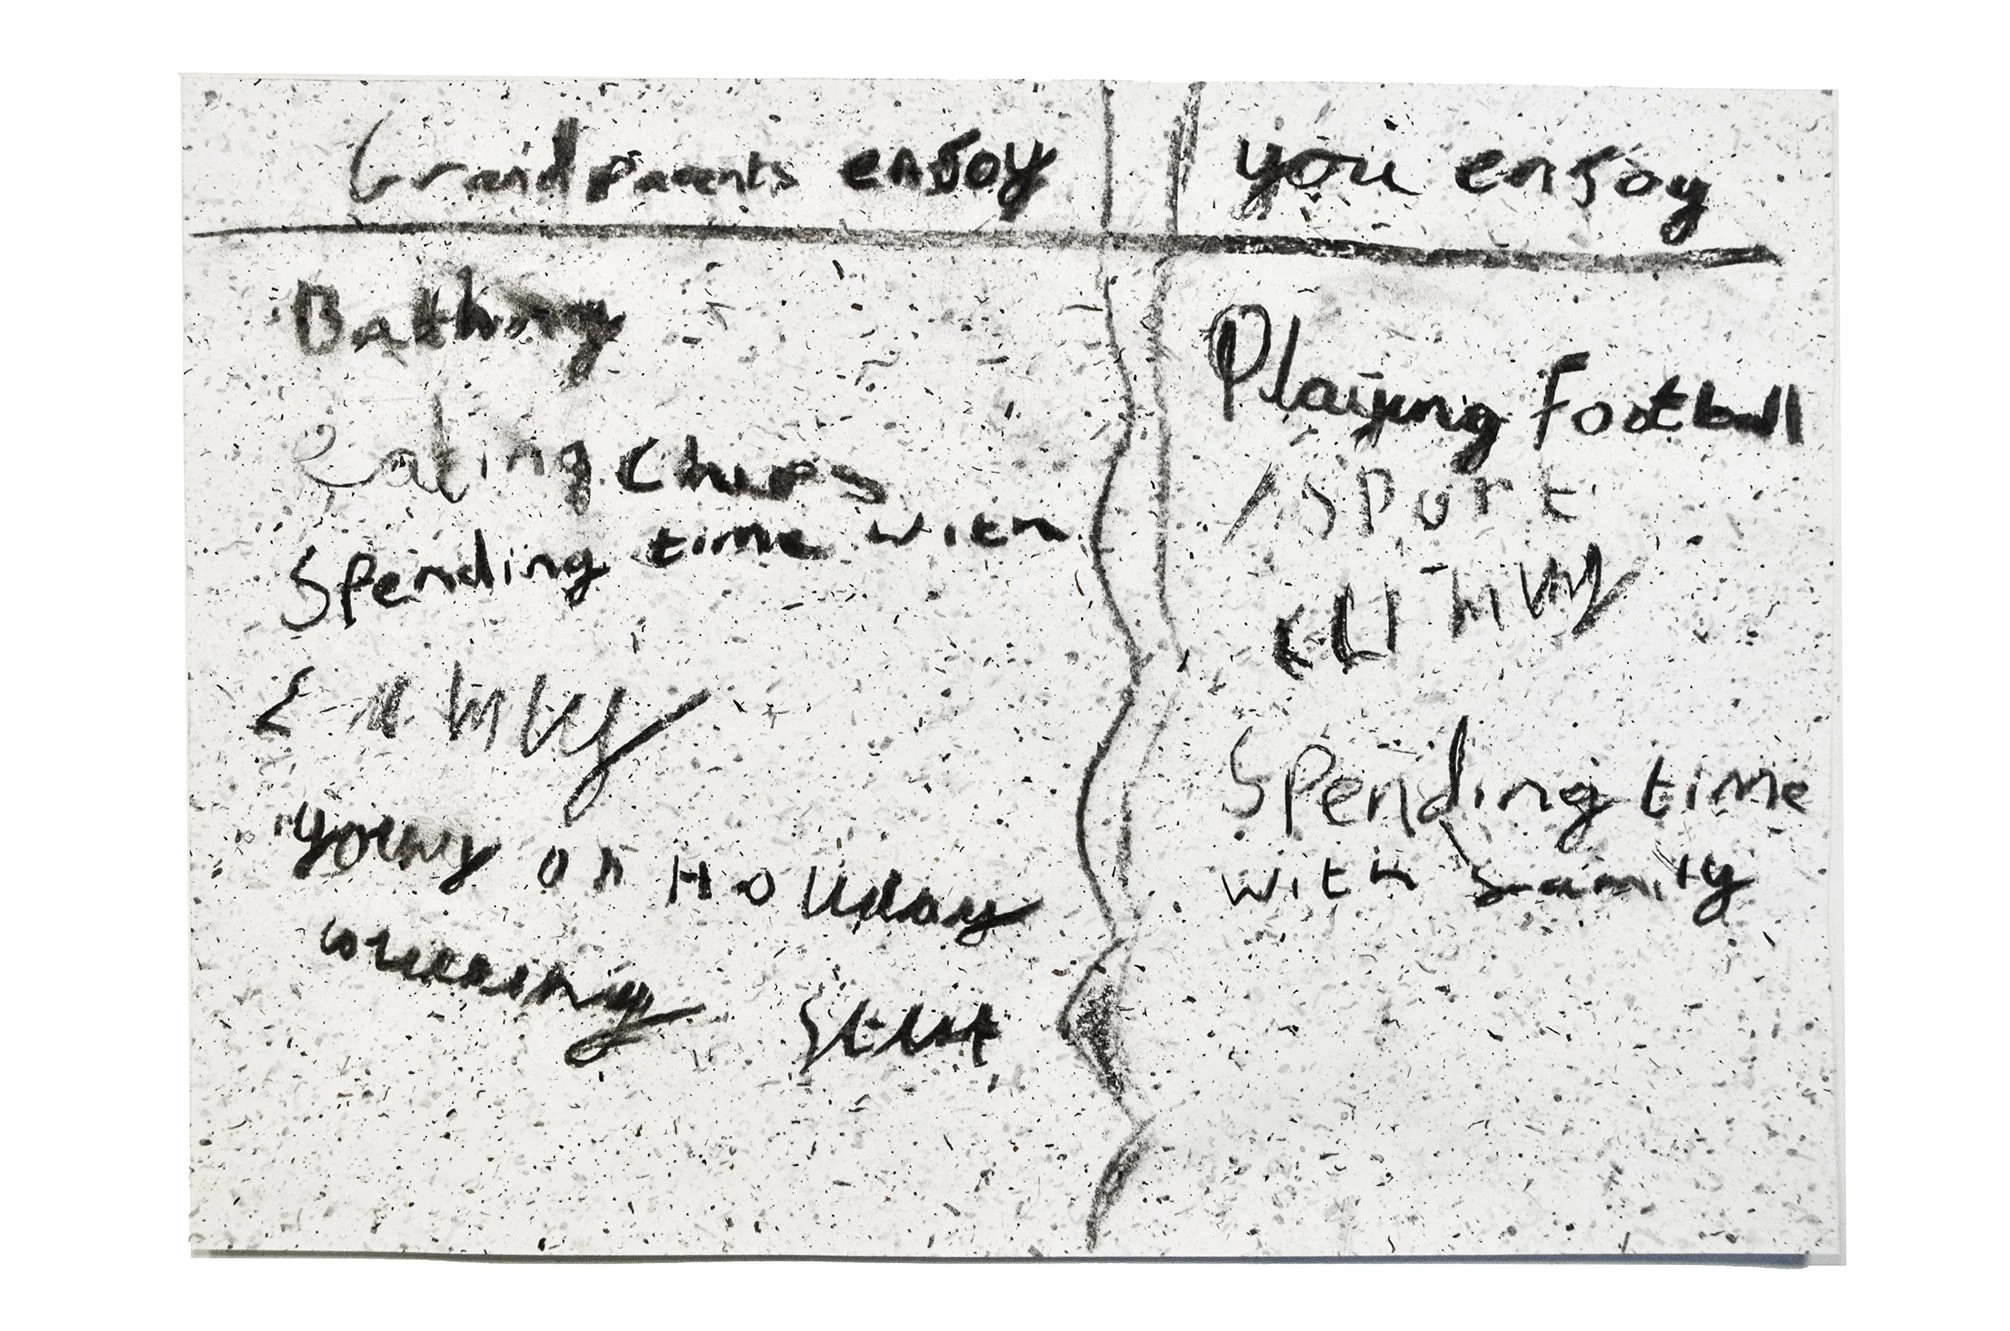 Grandparents enjoy
Bathing
eating chips
Spending time with
family
going on Holliday
Wearing
you enjoy
Playing Football
/sport
Spending time
with family